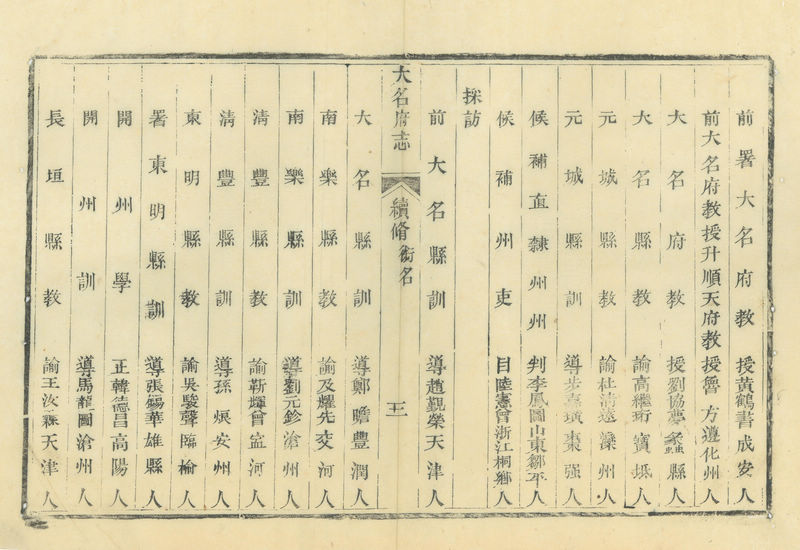 前署大名府教授黃鶴書成安人
前大名府教授升順天府教授魯方遵化州人
大名府教授劉協夢蠡縣人
大名縣教諭高繼珩寶坻人
元城縣教諭杜清遠灤州人
元城縣訓導步青璜棗强人
候補直隸州州判李鳳圖山東鄒平人
候補州吏目陸憲曾浙江桐鄉人
採訪
前大名縣訓導趙覲榮天津人
大名府志
續脩銜名
王
大名縣訓導鄭瞻豐潤人
南樂縣教諭及耀先交河人
南樂縣訓導劉元鈐滄州人
清豐縣教諭靳輝曾宣河人
清豐縣訓導孫 安州人
東明縣教諭吳駿聲臨榆人
署東明縣訓導張錫華雄縣人
開州學正韓德昌高陽人
開州訓導馬龍圖滄州人
長垣縣教諭王汝霖天津人